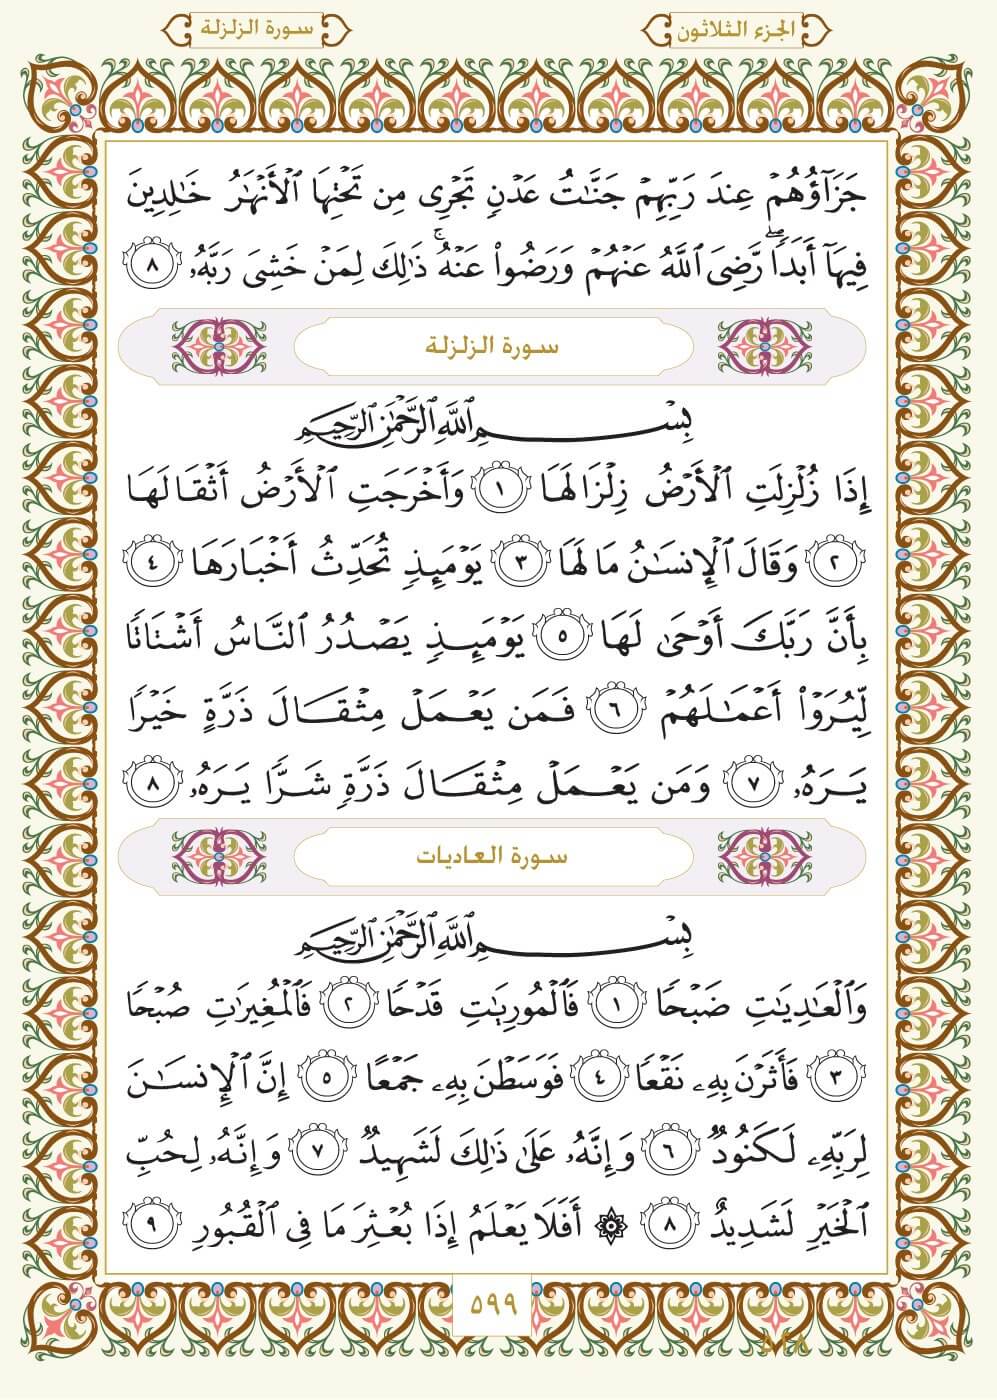 الجزء الثلاثون
سورة الزلزلة
جَزَآؤُهُمْ عِندَ رَبِّهِمْ جَنَّـٰتُ عَدْنٍ تَجْرِى مِن تَحْتِهَا ٱلْأَنْهَـٰرُ خَـٰلِدِينَ
فِيهَآ أَبَدًا ۖ رَّضِىَ ٱللَّهُ عَنْهُمْ وَرَضُوا۟ عَنْهُ ۚ ذَٰلِكَ لِمَنْ خَشِىَ رَبَّهُۥ ٨
سورة الزلزلة
بِسْمِ ٱللَّهِ ٱلرَّحْمَـٰنِ ٱلرَّحِيمِ
إِذَا زُلْزِلَتِ ٱلْأَرْضُ زِلْزَالَهَا ١ وَأَخْرَجَتِ ٱلْأَرْضُ أَثْقَالَهَا
٢ وَقَالَ ٱلْإِنسَـٰنُ مَا لَهَا ٣ يَوْمَئِذٍ تُحَدِّثُ أَخْبَارَهَا ٤
بِأَنَّ رَبَّكَ أَوْحَىٰ لَهَا ٥ يَوْمَئِذٍ يَصْدُرُ ٱلنَّاسُ أَشْتَاتًا
لِّيُرَوْا۟ أَعْمَـٰلَهُمْ ٦ فَمَن يَعْمَلْ مِثْقَالَ ذَرَّةٍ خَيْرًا
يَرَهُۥ ٧ وَمَن يَعْمَلْ مِثْقَالَ ذَرَّةٍ شَرًّا يَرَهُۥ ٨
سورة العاديات
بِسْمِ ٱللَّهِ ٱلرَّحْمَـٰنِ ٱلرَّحِيمِ
وَٱلْعَـٰدِيَـٰتِ ضَبْحًا ١ فَٱلْمُورِيَـٰتِ قَدْحًا ٢ فَٱلْمُغِيرَٰتِ صُبْحًا
٣ فَأَثَرْنَ بِهِۦ نَقْعًا ٤ فَوَسَطْنَ بِهِۦ جَمْعًا ٥ إِنَّ ٱلْإِنسَـٰنَ
لِرَبِّهِۦ لَكَنُودٌ ٦ وَإِنَّهُۥ عَلَىٰ ذَٰلِكَ لَشَهِيدٌ ٧ وَإِنَّهُۥ لِحُبِّ
ٱلْخَيْرِ لَشَدِيدٌ ٨ ۞ أَفَلَا يَعْلَمُ إِذَا بُعْثِرَ مَا فِى ٱلْقُبُورِ ٩
٥٩٩